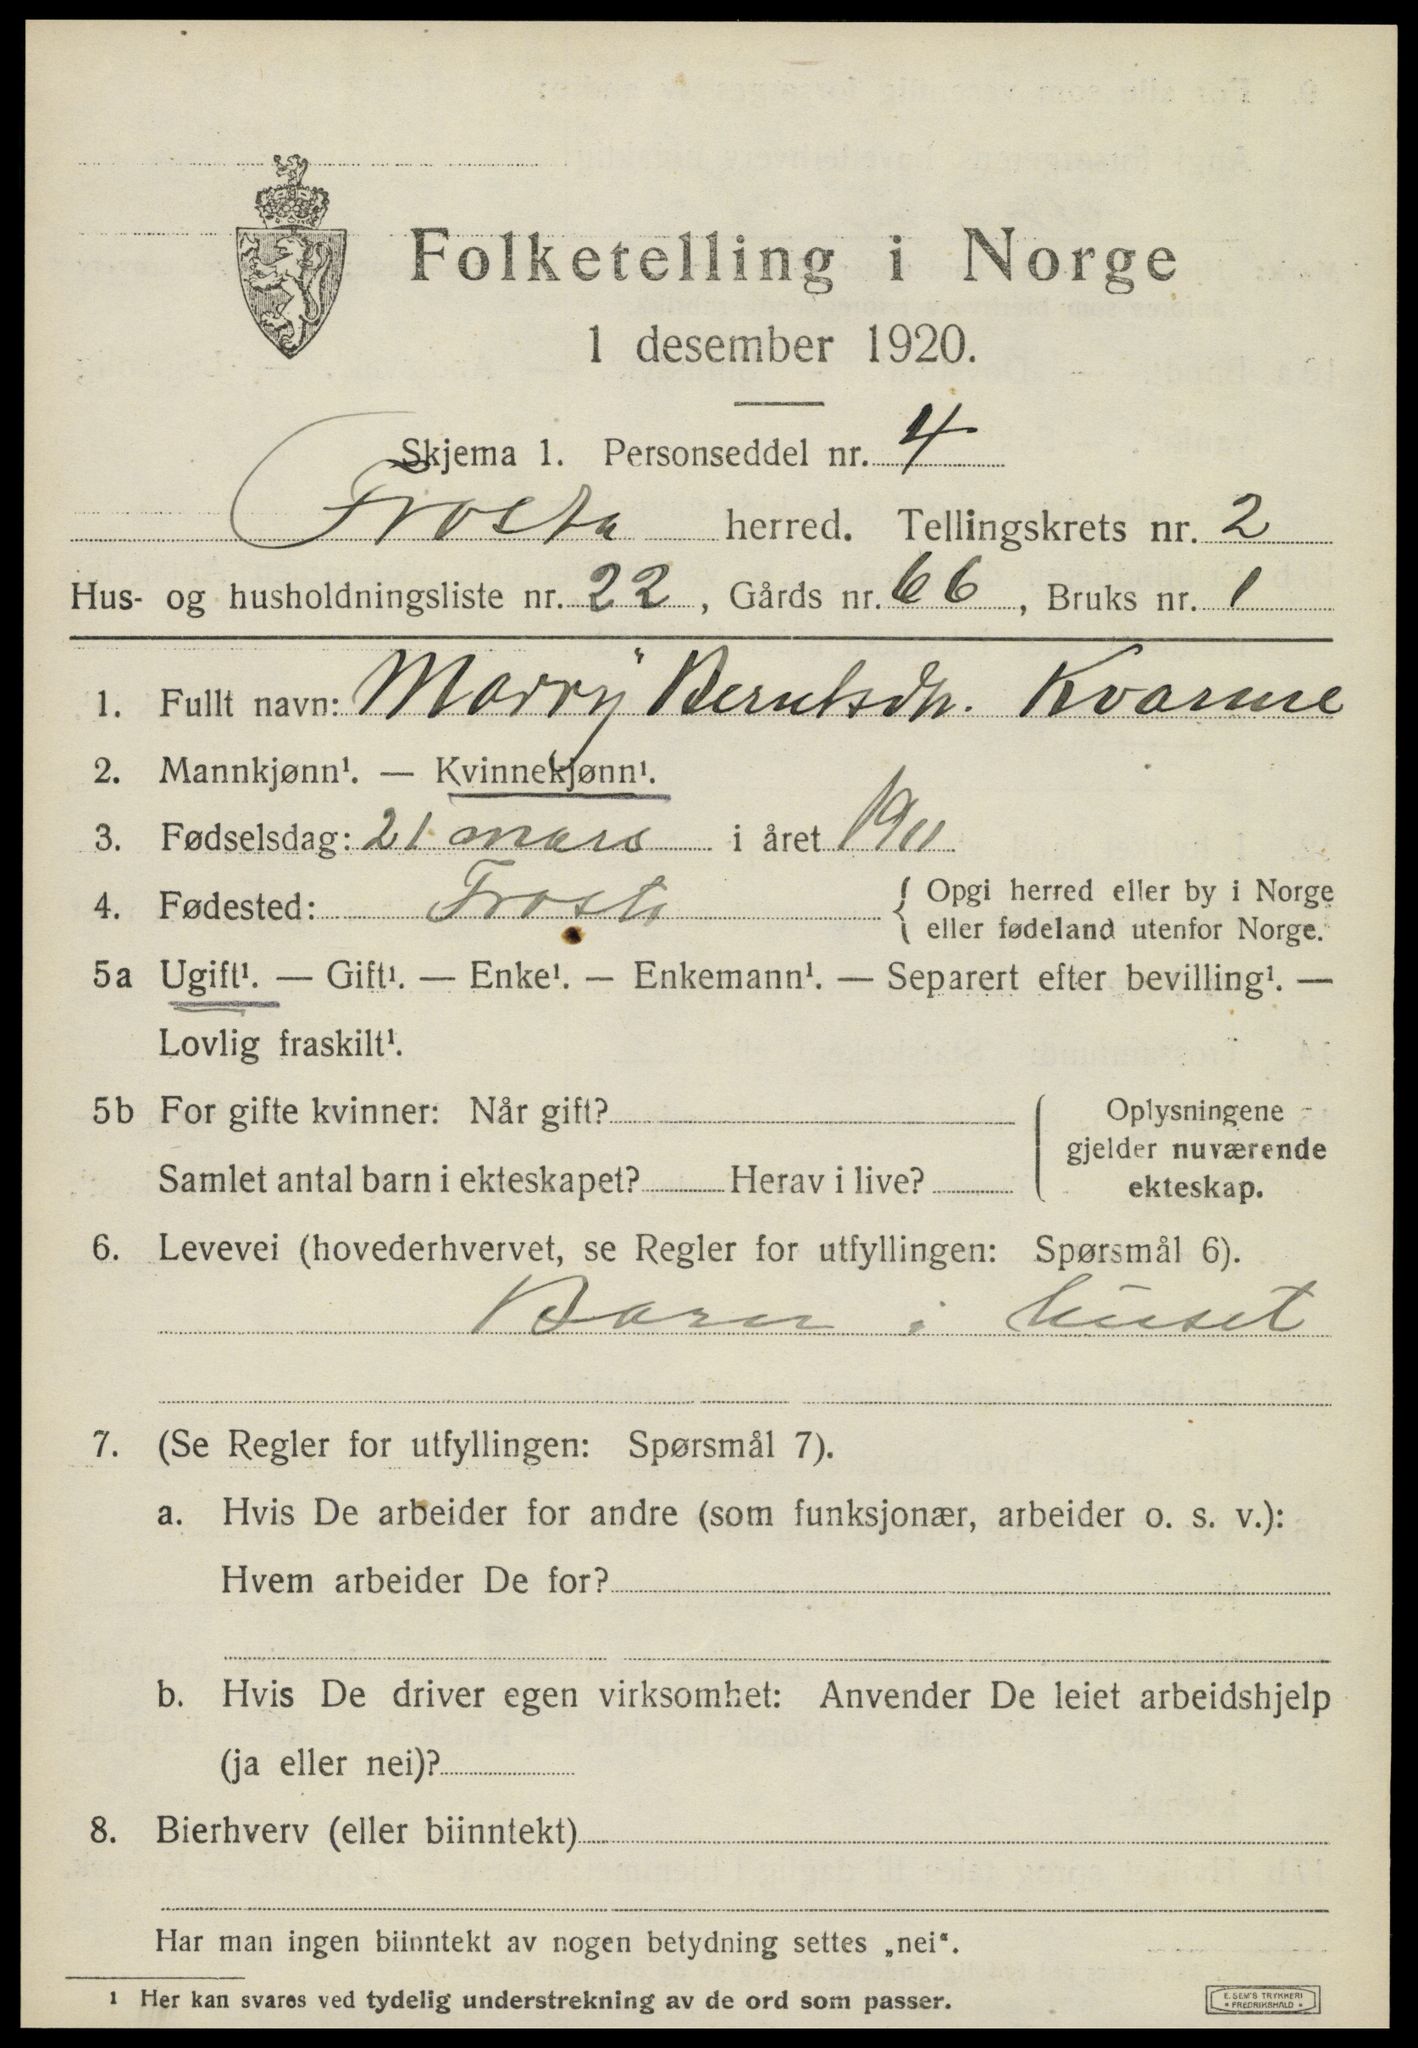 Folketelling i Norge
1 desember 1920.
Skjema 1. Personseddel nr. 4
Frosta herred. Tellingskrets nr. 2
Hus- og husholdningsliste nr. 22, Gårds nr. 66, Bruks nr. 1
1. Fullt navn: Marry Berntsdtr. Kvamme
2. Mannkjønn¹. — Kvinnekjønn¹.
3. Fødselsdag: 21 mars i året 1911
4. Fødested: Frosta { Opgi herred eller by i Norge
eller fødeland utenfor Norge.
5a Ugift¹. — Gift¹. — Enke¹. — Enkemann¹. — Separert efter bevilling¹. —
Lovlig fraskilt¹.
5b For gifte kvinner: Når gift? Oplysningene
gjelder nuværende
Samlet antal barn i ekteskapet? Herav i live? ekteskap.
6. Levevei (hovederhvervet, se Regler for utfyllingen: Spørsmål 6).
Barn i huset
7. (Se Regler for utfyllingen: Spørsmål 7).
a. Hvis De arbeider for andre (som funksjonær, arbeider o. s. v.):
Hvem arbeider De for?
b. Hvis De driver egen virksomhet: Anvender De leiet arbeidshjelp
(ja eller nei)?
8. Bierhverv (eller biinntekt)
Har man ingen biinntekt av nogen betydning settes „nei“.
1 Her kan svares ved tydelig understrekning av de ord som passer.
E. SEM'S TRYKKERI
* FREDRIKSHALD *